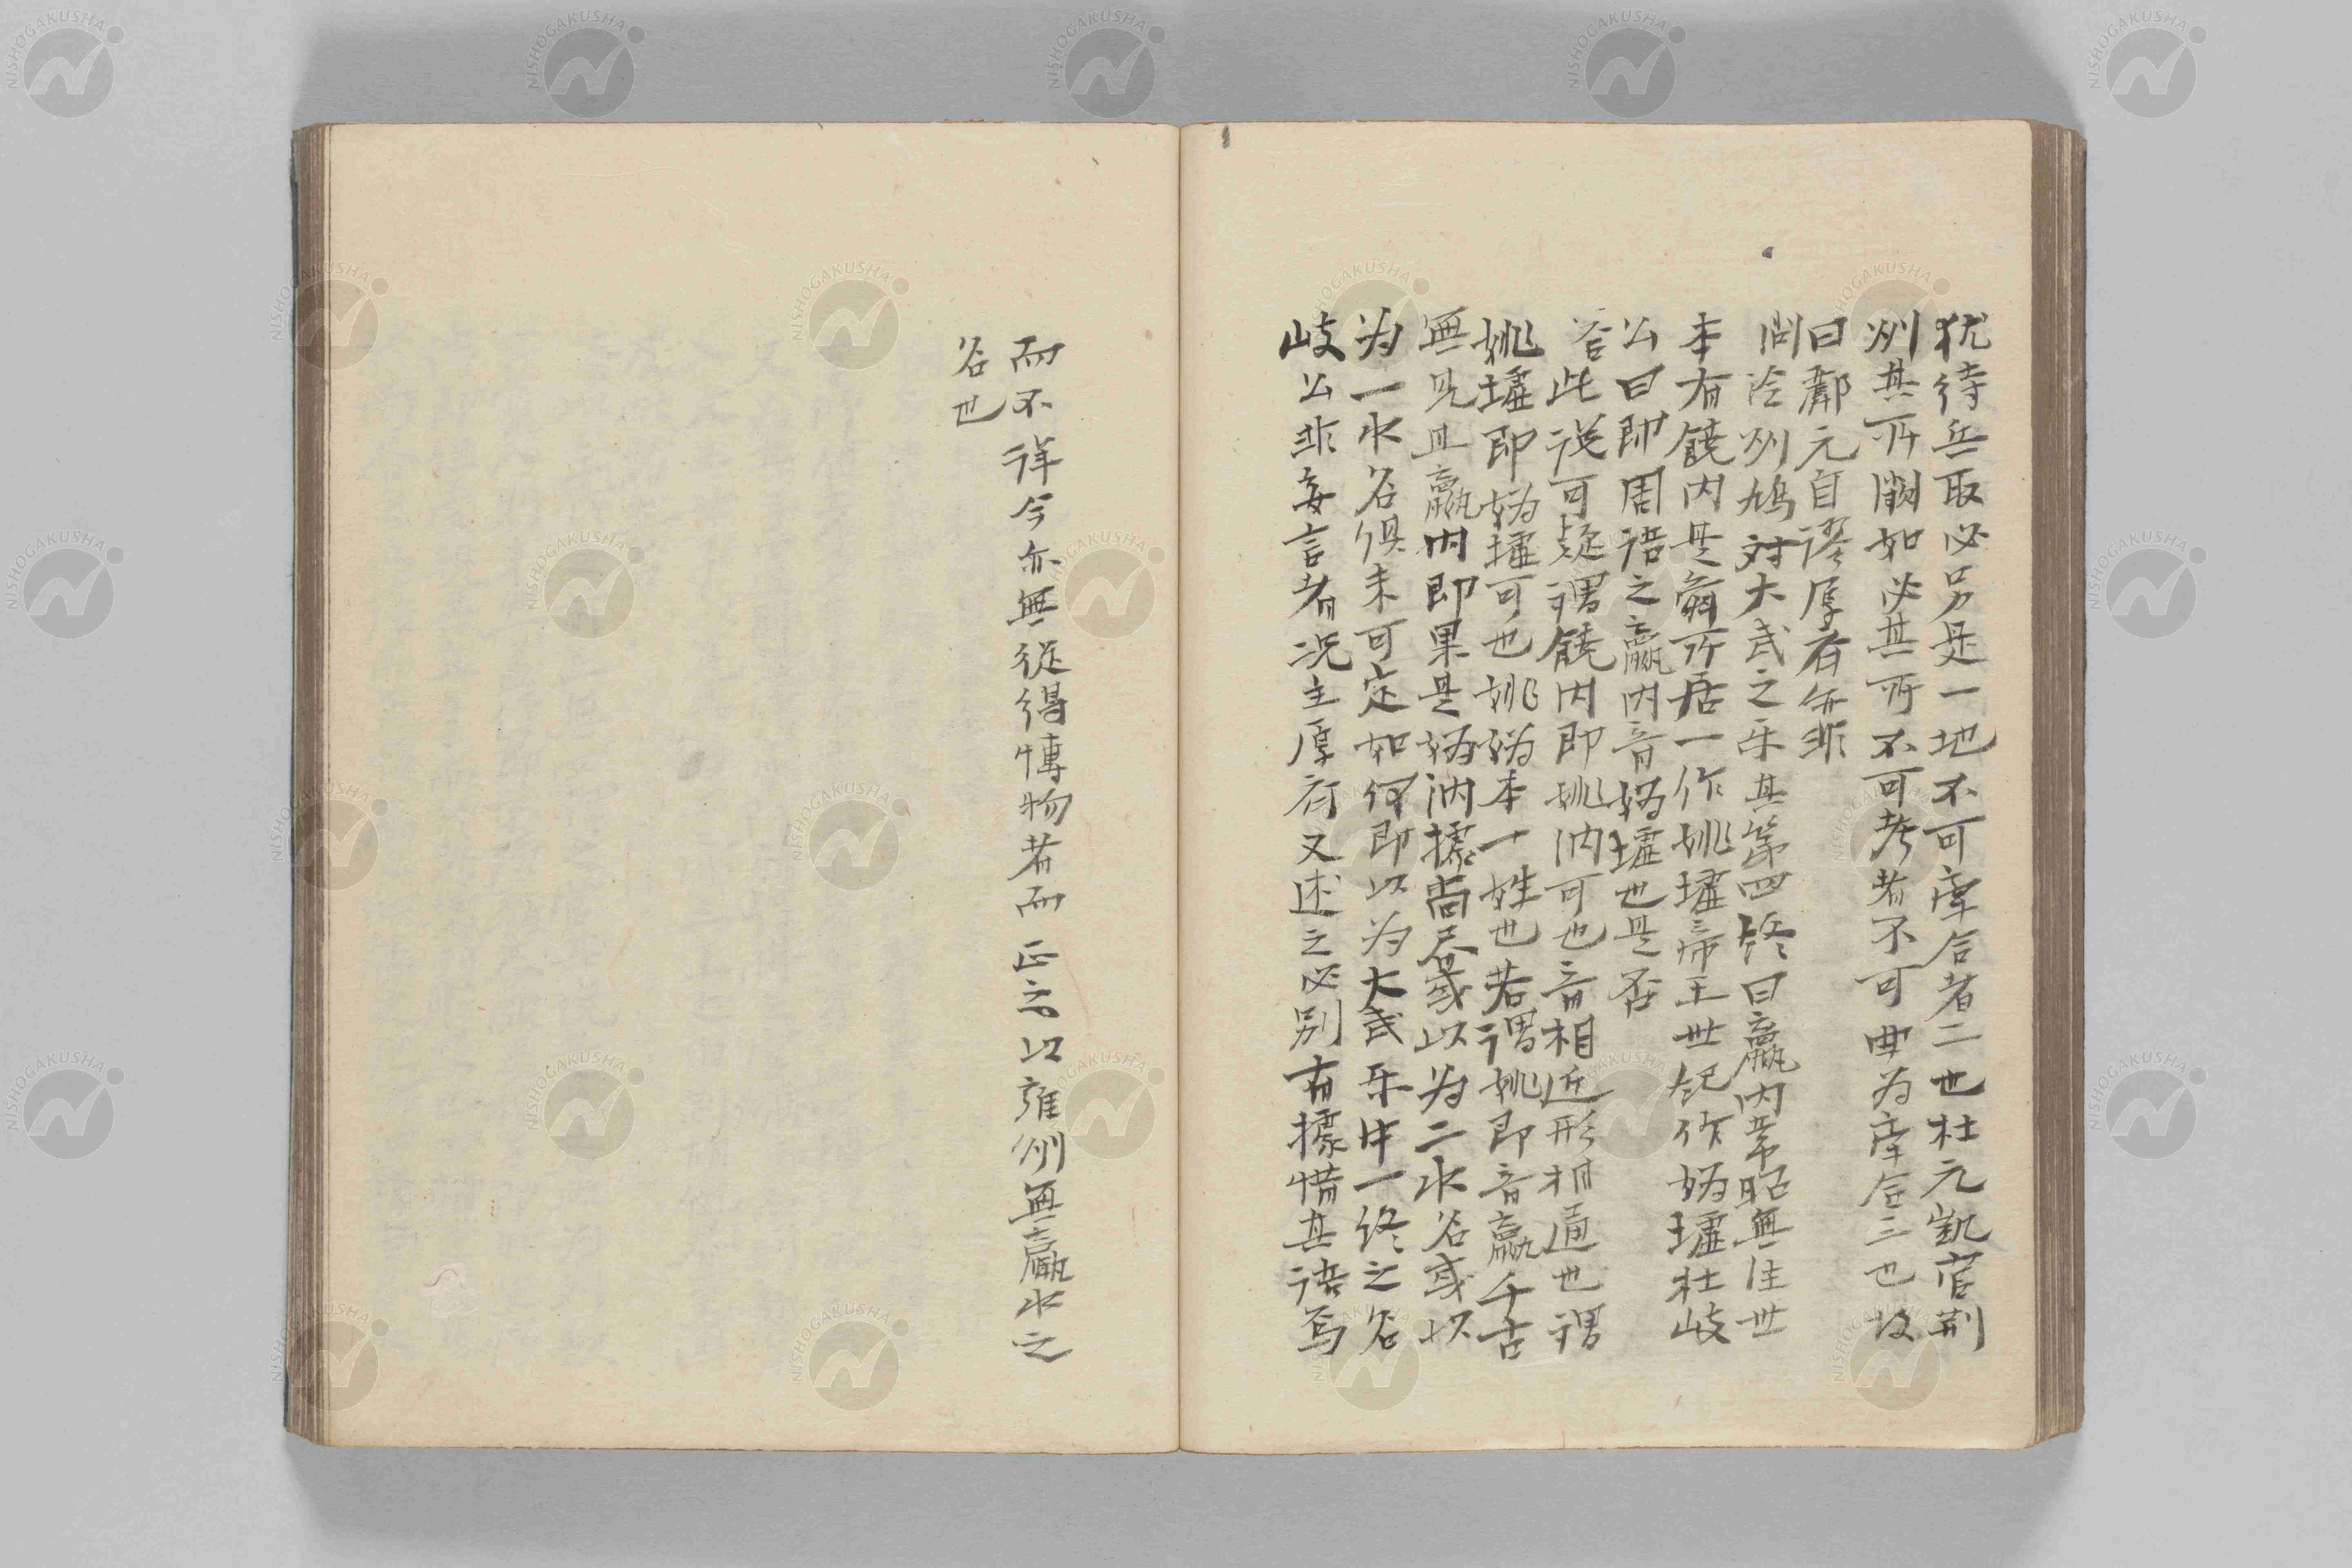 犹待兵取必另是一地不可牽合者二也杜元凱官荆
州其所關如必其所不可考者不可曲为牽合三也故
曰酈元自謬厚斋無非
問泠州鳩対大武之乐其第四终曰嬴内韋昭無注世
本有饒内是舜所居一作姚墟帝王世紀作媯墟杜岐
公曰卽周语之嬴内音媯墟也是否
答此说可疑谓饒内即姚汭可也音相近形相通也谓
姚墟即媯墟可也姚媯本一姓也若谓姚即音嬴千古
無見且嬴内即果是媯汭據尚书或以为二水名或以
为一水名俱未可定如何即以为大武乐中一终之名
岐公非妄言者况主厚斋又述之必别有據惜其语焉
而不详今亦無從得愽物者而正之以雍州無嬴水之
名也
NISHOGAKUSHA